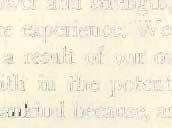 power and strength
experience. We
a result of our ow
in the potent
mankind because, a